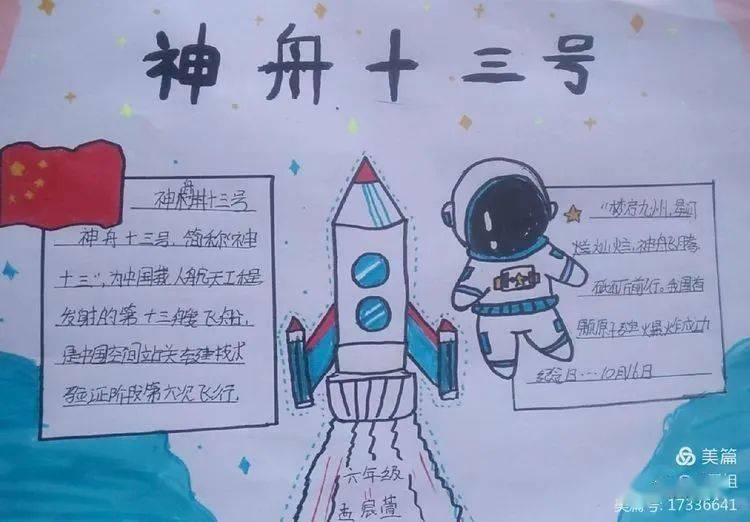 神舟十三号
神舟十三号
神舟十三号,简称"神
十三",为中国载人航天工程
发射的第十三艘飞船,
是中国空间站关键技术
验证阶段第六次飞行.
"梦启九州,星河
灿灿烂,神舟飞腾
砥砺前行。我国首
颗原子弹爆炸成功
纪念日...10月16日
六年级
美篇
美篇号:17336641